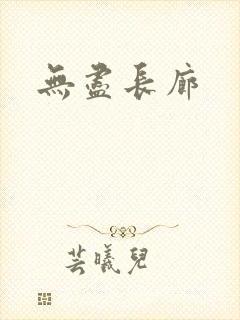 無盡長廊
芸曦兒